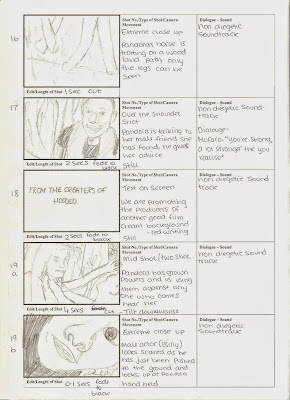 Shot No./Type of Shot/Camera
Movement
Dialogue - Sound
16
Extreme close up
Pandoras horse is
trotting on a wood
land path only
the legs can be
seen
non diegetic
soundtrack
Edit/Length of Shot 1 sec cut
Shot No./Type of Shot/Camera
Movement
Dialogue - Sound
17
Over the shoulder
shot
Pandora is talking to
her male friend she
has found, he gives
her advice
still
non diegetic sound-
track
Dialouge:
"You're strong,
a lot stronger the you
realise"
Edit/Length of Shot 2 secs fade to
black
Shot No./Type of Shot/Camera
Movement
Dialogue - Sound
18
FROM THE CREATERS OF
HOODED
Text on screen
We are promoting
the producers of
another good film
Cream background
- red writing
still
non diegetic sound
track
Edit/Length of Shot 2 secs fade to
black
Shot No./Type of Shot/Camera
Movement
Dialogue - Sound
19
a
Mid shot/two shot
Pandora has grown
powers and is using
them against any
one who comes
near her
- Tilt downwards
non diegetic sound
track
Edit/Length of Shot 4 secs cut
Shot No./Type of Shot/Camera
Movement
Dialogue - Sound
19
b
Extreme close up
Male actor (Billy)
looks scared as he
has just been pushed
to the ground and
looks up at Pandora
hand held
non diegetic
soundtrack
Edit/Length of Shot 0.1 secs fade
to
black